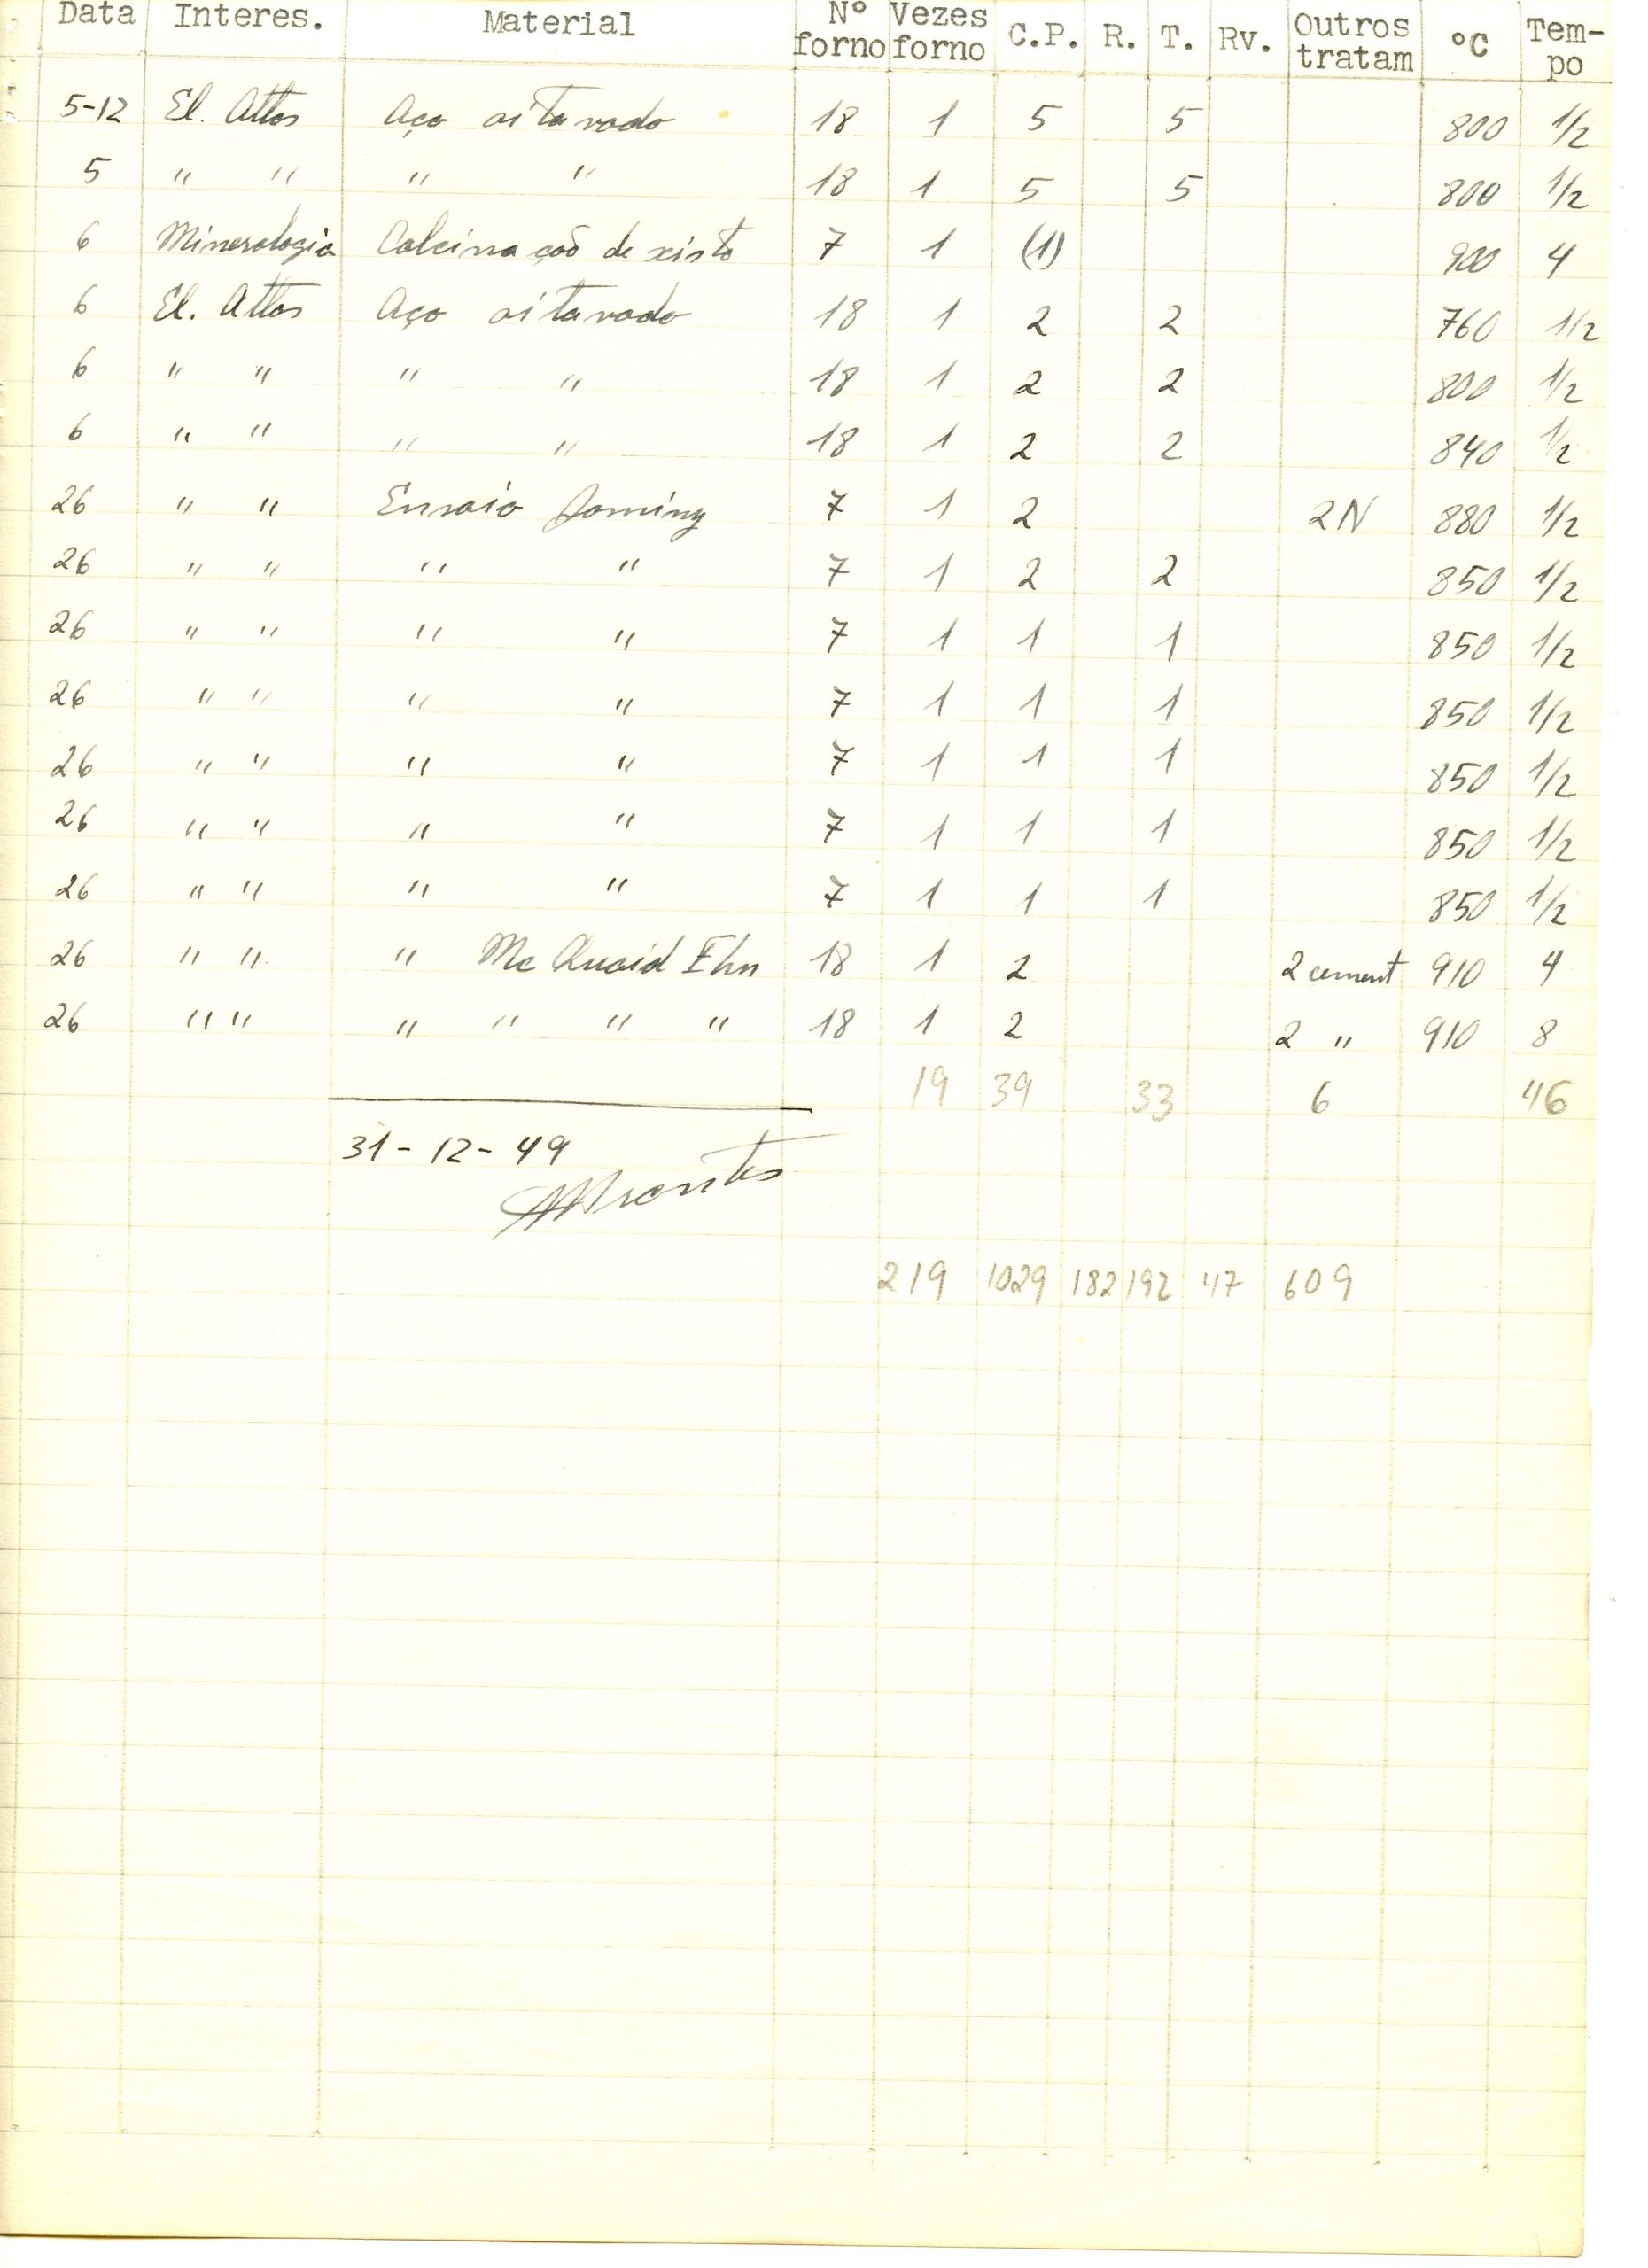 Data Interes. Material Nº forno Vezes forno C.P. R. T. Rv. Outros tratam ºC Tem-po
5-12 El. Altos Aço oitavado 18 1 5 5 800 1/2
5 " " " " 18 1 5 5 800 1/2
6 Mineralogia Calcinação de xisto 7 1 (1) 900 4
6 El. Altos Aço oitavado 18 1 2 2 760 1/2
6 " " " " 18 1 2 2 800 1/2
6 " " " " 18 1 2 2 840 1/2
26 " " Ensaio Jominy 7 1 2 2N 880 1/2
26 " " " " 7 1 2 2 850 1/2
26 " " " " 7 1 1 1 850 1/2
26 " " " " 7 1 1 1 850 1/2
26 " " " " 7 1 1 1 850 1/2
26 " " " " 7 1 1 1 850 1/2
26 " " " " 7 1 1 1 850 1/2
26 " " " Mc Quaid Ehn 18 1 2 2 cement 910 4
26 " " " " " " 18 1 2 2 " 910 8
19 39 33 6 46
31-12-49
219 1029 182 192 47 609